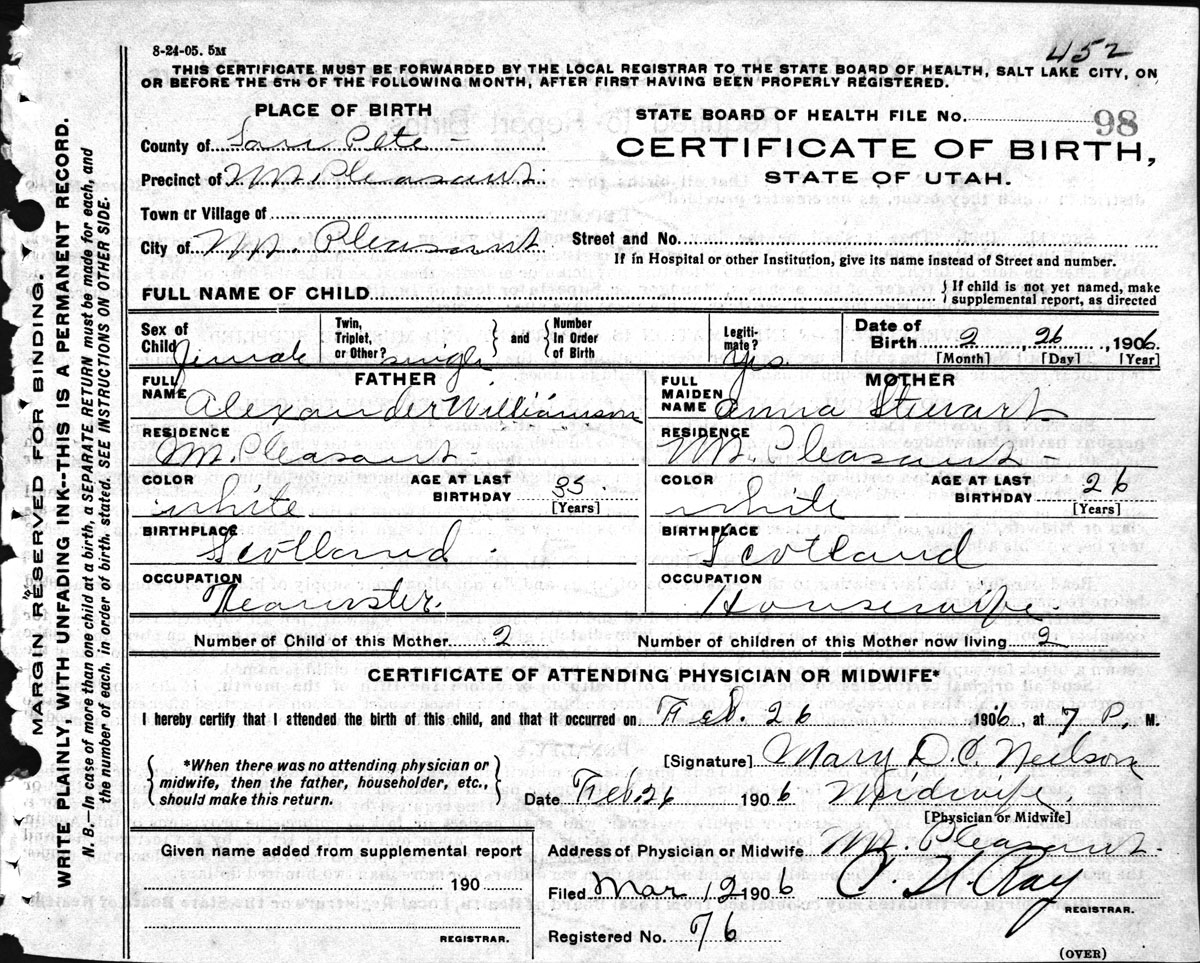 8-24-05. 5M
452
THIS CERTIFICATE MUST BE FORWARDED BY THE LOCAL REGISTRAR TO THE STATE BOARD OF HEALTH, SALT LAKE CITY, ON
OR BEFORE THE 5TH OF THE FOLLOWING MONTH, AFTER FIRST HAVING BEEN PROPERLY REGISTERED.
PLACE OF BIRTH
STATE BOARD OF HEALTH FILE No. 98
County of San Pete
CERTIFICATE OF BIRTH,
Precinct of Mt. Pleasant
STATE OF UTAH.
Town or Village of
City of Mt. Pleasant
Street and No.
If in Hospital or other Institution, give its name instead of Street and number.
FULL NAME OF CHILD
{ If child is not yet named, make
supplemental report, as directed
Sex of Child Female
Twin, Triplet, or Other? single
} and { Number In Order of Birth
Legiti- mate? yes
Date of Birth 2 26, 1906
[Month] [Day] [Year]
FATHER
MOTHER
FULL NAME Alexander Williamson
FULL MAIDEN NAME Anna Stewart
RESIDENCE Mt. Pleasant
RESIDENCE Mt. Pleasant
COLOR White
AGE AT LAST BIRTHDAY 35 [Years]
COLOR White
AGE AT LAST BIRTHDAY 26 [Years]
BIRTHPLACE Scotland
BIRTHPLACE Scotland
OCCUPATION
OCCUPATION Housewife
Number of Child of this Mother 2
Number of children of this Mother now living 2
CERTIFICATE OF ATTENDING PHYSICIAN OR MIDWIFE*
I hereby certify that I attended the birth of this child, and that it occurred on Feb. 26 1906, at 7 P. M.
{ *When there was no attending physician or
midwife, then the father, householder, etc.,
should make this return. }
[Signature] Mary D. C. Neilson
Date Feb. 26 1906 Midwife.
[Physician or Midwife]
Given name added from supplemental report
190
REGISTRAR.
Address of Physician or Midwife Mt. Pleasant
Filed Mar 12 1906
Ray
REGISTRAR.
Registered No. 76
(OVER)
MARGIN RESERVED FOR BINDING.
WRITE PLAINLY, WITH UNFADING INK--THIS IS A PERMANENT RECORD.
N. B.—In case of more than one child at a birth, a SEPARATE RETURN must be made for each, and
the number of each, in order of birth, stated. SEE INSTRUCTIONS ON OTHER SIDE.